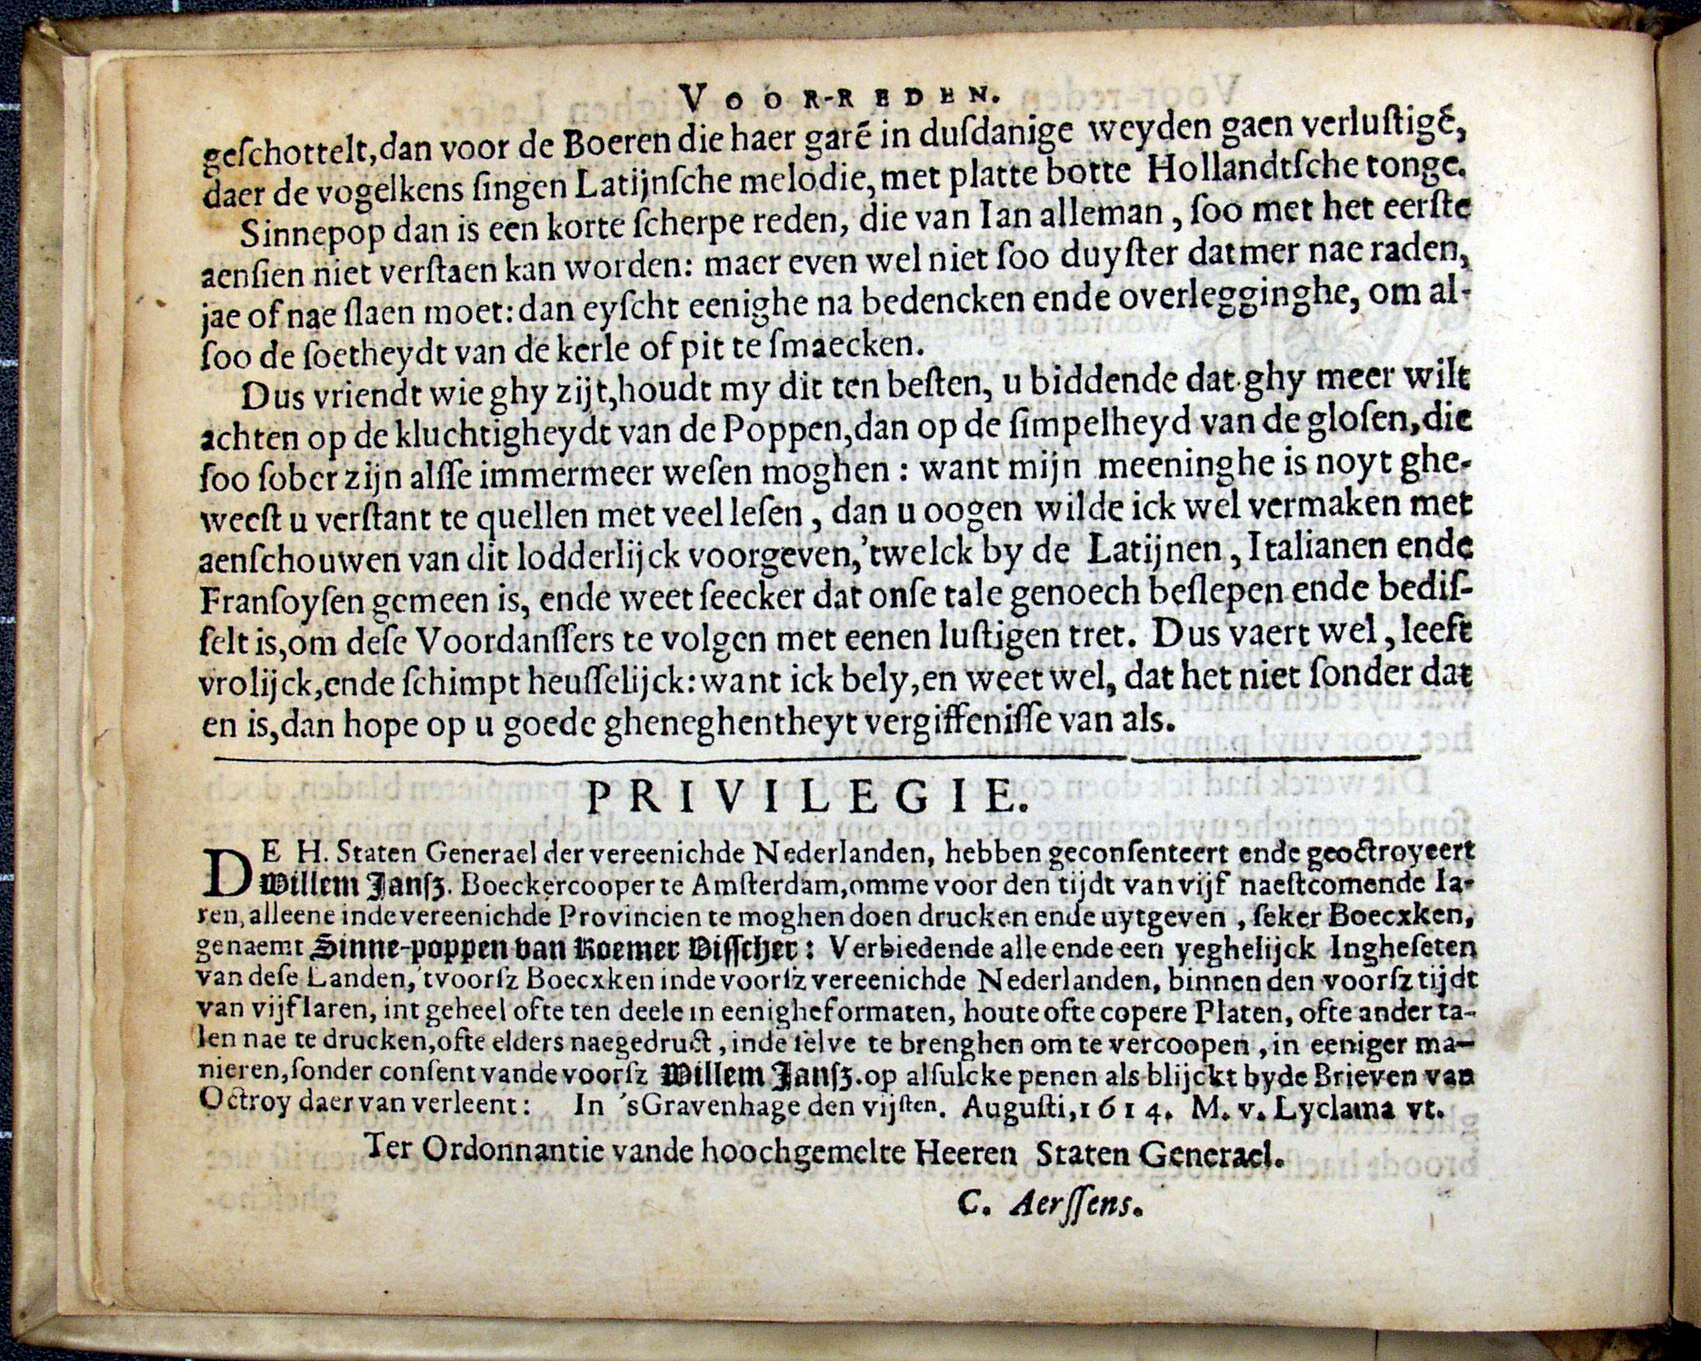 VOOR-REDEN.
geſchottelt, dan voor de Boeren die haer garẽ in duſdanige weyden gaen verluſtigẽ,
daer de vogelkens ſingen Latijnſche melodie, met platte botte Hollandtſche tonge.
Sinnepop dan is een korte ſcherpe reden, die van Ian alleman, ſoo met het eerſte
aenſien niet verſtaen kan worden: maer even wel niet ſoo duyſter datmer nae raden,
jae of nae ſlaen moet: dan eyſcht eenighe na bedencken ende overlegginghe, om al-
ſoo de ſoetheydt van de kerle of pit te ſmaecken.
Dus vriendt wie ghy zijt, houdt my dit ten beſten, u biddende dat ghy meer wilt
achten op de kluchtigheydt van de Poppen, dan op de ſimpelheyd van de gloſen, die
ſoo ſober zijn alſſe immermeer weſen moghen: want mijn meeninghe is noyt ghe-
weeſt u verſtant te quellen met veel leſen, dan u oogen wilde ick wel vermaken met
aenſchouwen van dit lodderlijck voorgeven, 'twelck by de Latijnen, Italianen ende
Franſoyſen gemeen is, ende weet ſeecker dat onſe tale genoech beſlepen ende bediſ-
ſelt is, om deſe Voordanſſers te volgen met eenen luſtigen tret. Dus vaert wel, leeft
vrolijck, ende ſchimpt heuſſelijck: want ick bely, en weet wel, dat het niet ſonder dat
en is, dan hope op u goede gheneghentheyt vergiffeniſſe van als.
PRIVILEGIE.
DE H. Staten Generael der vereenichde Nederlanden, hebben geconſenteert ende geoctroyeert
Willem Janſz. Boeckercooper te Amſterdam, omme voor den tijdt van vijf naeſtcomende Ia-
ren, alleene inde vereenichde Provincien te moghen doen drucken ende uytgeven, ſeker Boecxken,
genaemt Sinne-poppen van Roemer Viſſcher: Verbiedende alle ende een yeghelijck Ingheſeten
van deſe Landen, 'tvoorſz Boecxken inde voorſz vereenichde Nederlanden, binnen den voorſz tijdt
van vijf Iaren, int geheel ofte ten deele in eenighe formaten, houte ofte copere Platen, ofte ander ta-
len nae te drucken, ofte elders naegedruct, inde ſelve te brenghen om te vercoopen, in eeniger ma-
nieren, ſonder conſent vande voorſz Willem Janſz. op alſulcke penen als blijckt byde Brieven van
Octroy daer van verleent: In 'sGravenhage den vijſten. Auguſti, 1614. M. v. Lyclama vt.
Ter Ordonnantie vande hoochgemelte Heeren Staten Generael.
C. Aerſſens.